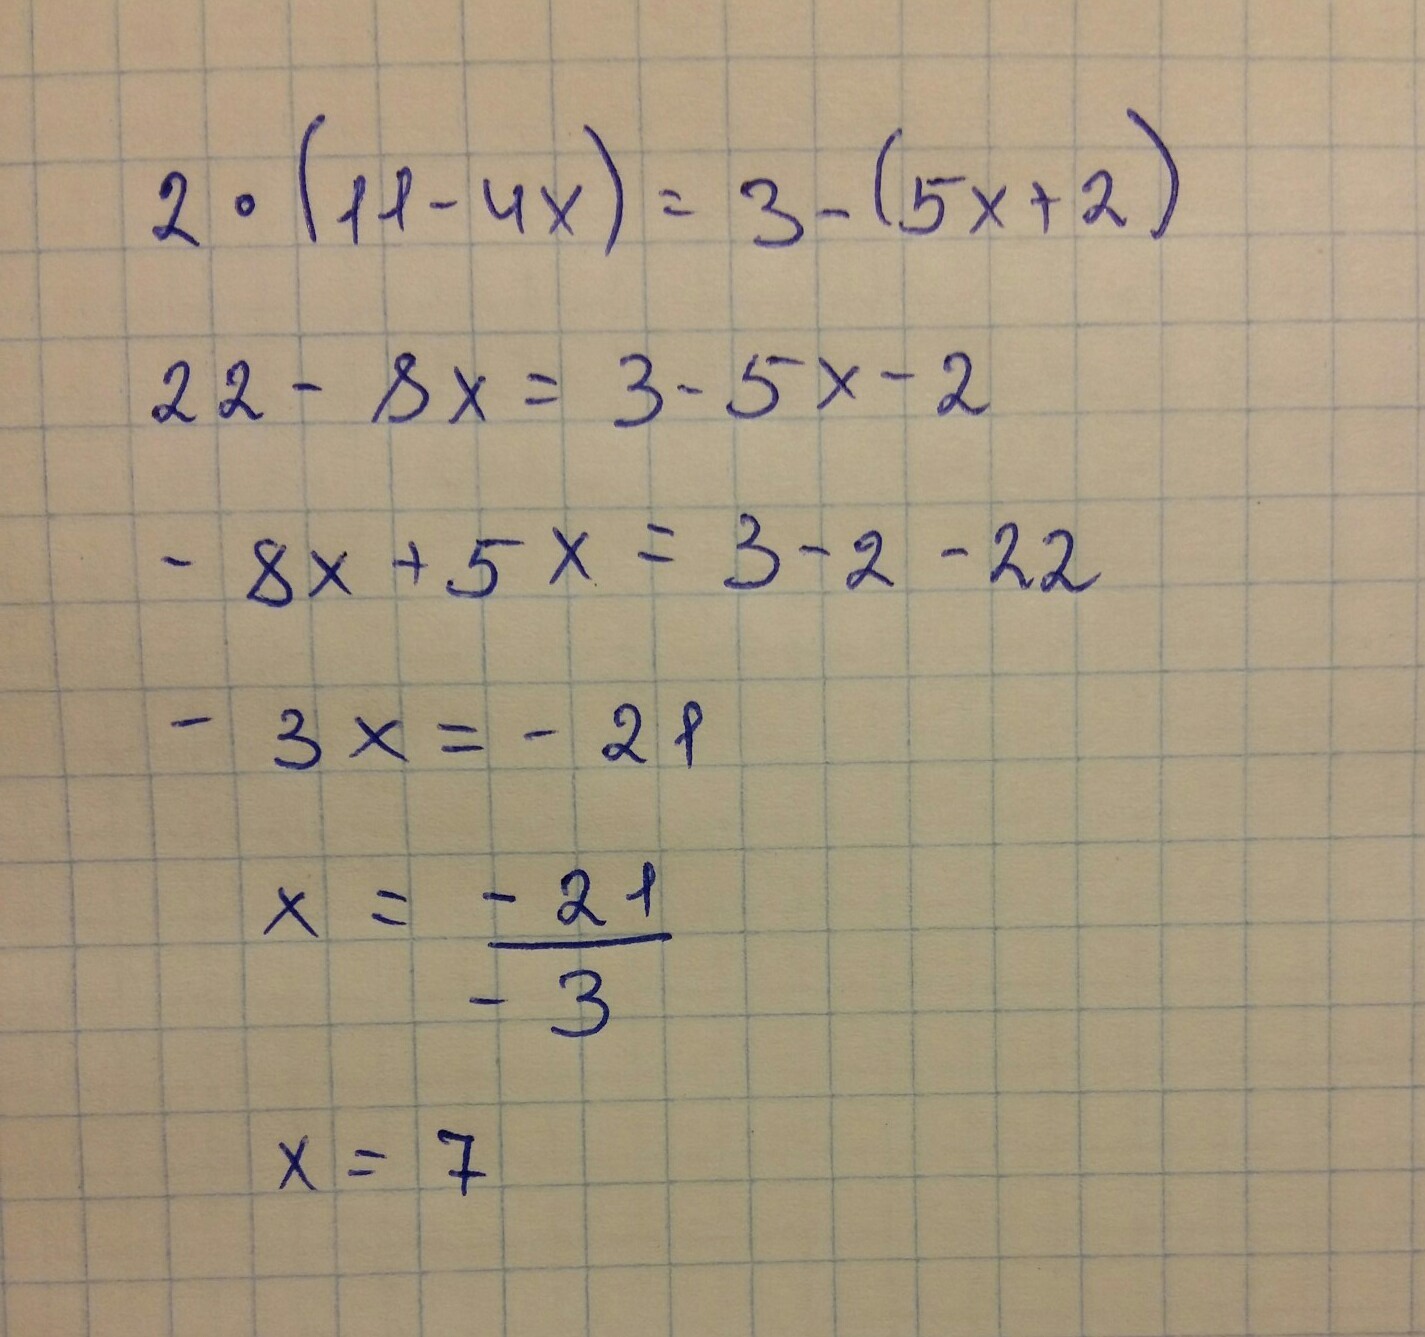 2 • (11 - 4x) = 3 - (5x + 2)
22 - 8x = 3 - 5x - 2
- 8x + 5x = 3 - 2 - 22
- 3x = - 21
x = - 21
- 3
x = 7